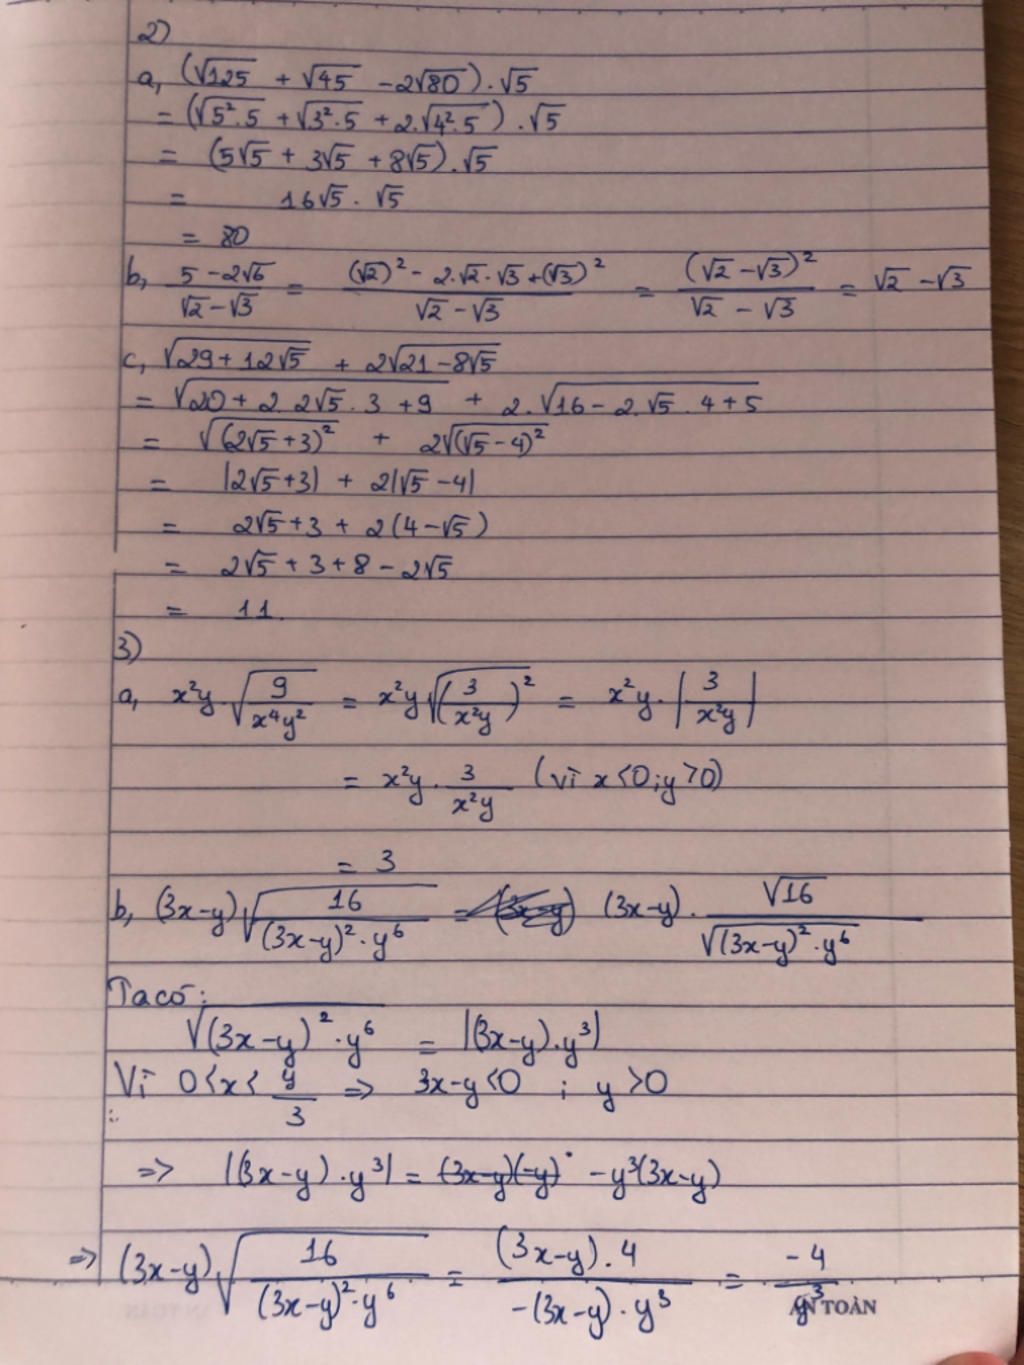 2)
a, (√125 + √45 - 2√80).√5
= (√5².5 + √3².5 + 2.√4².5).√5
= (5√5 + 3√5 + 8√5).√5
= 16√5. √5
= 80
b, (5-2√6)/(√2-√3) = ((√2)² - 2.√2.√3+(√3)²)/(√2-√3) = (√2-√3)²/(√2-√3) = √2-√3
c, √(29+12√5) + 2√(21-8√5)
= √(20+2.2√5.3+9) + 2.√(16-2.√5.4+5)
= √(2√5+3)² + 2√(√5-4)²
= |2√5+3| + 2|√5-4|
= 2√5+3 + 2(4-√5)
= 2√5+3+8-2√5
= 11.
3)
a, x²y.√(9/(x⁴y²)) = x²y√(3/(x²y))² = x²y.|3/(x²y)|
= x²y.3/(x²y) (vì x<0;y>0)
= 3
b, (3x-y)√(16/((3x-y)².y⁶)) = (3x-y) (3x-y).√16/√((3x-y)².y⁶)
Ta có:
√((3x-y)².y⁶) = |(3x-y).y³|
Vì 0<x<y/3 => 3x-y<0 ; y>0
=> |(3x-y).y³| = (3x-y)(-y) -y³(3x-y)
=> (3x-y)√(16/((3x-y)².y⁶)) = ((3x-y).4)/(-(3x-y).y³) = -4/y³
AN TOÀN